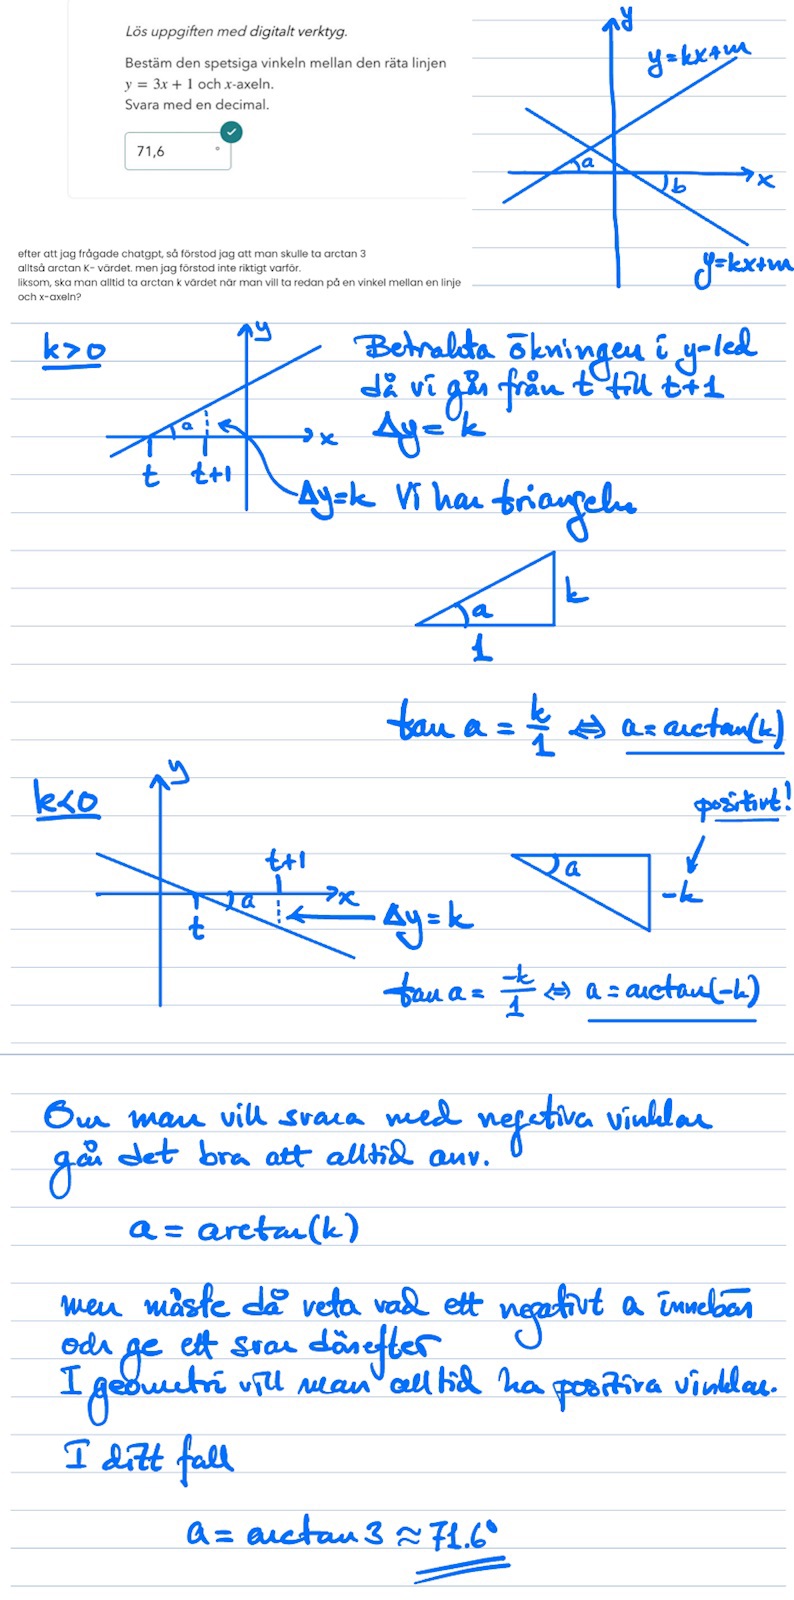 Lös uppgiften med digitalt verktyg.
Bestäm den spetsiga vinkeln mellan den räta linjen
y = 3x + 1 och x-axeln.
Svara med en decimal.
71,6 °
y
y=kx+m
a
x
b
y=kx+m
efter att jag frågade chatgpt, så förstod jag att man skulle ta arctan 3
alltså arctan K- värdet. men jag förstod inte riktigt varför.
liksom, ska man alltid ta arctan k värdet när man vill ta redan på en vinkel mellan en linje
och x-axeln?
k>0
y
a
x
t
t+1
Betrakta ökningen i y-led
då vi går från t till t+1
Δy= k
Δy=k Vi har triangeln
a
k
1
tan a = k/1 ⇔ a = arctan(k)
k<0
y
t+1
a
x
t
Δy=k
positivt!
a
-k
tan a = -k/1 ⇔ a = arctan(-k)
Om man vill svara med negativa vinklar
går det bra att alltid anv.
a = arctan(k)
men måste då veta vad ett negativt a innebär
och ge ett svar därefter
I geometri vill man alltid ha positiva vinklar.
I ditt fall
a = arctan 3 ≈ 71.6°